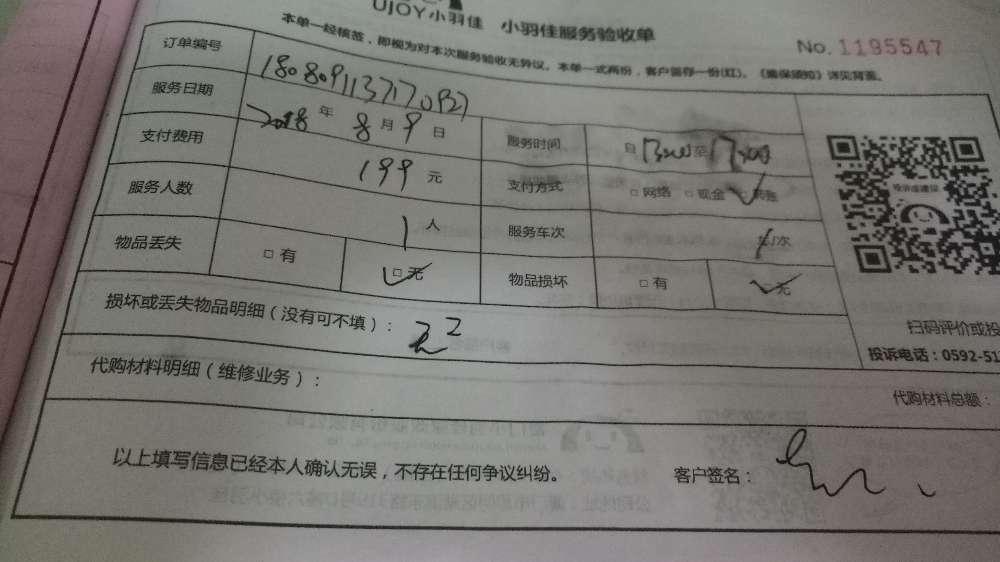 UJOY小羽佳 小羽佳服务验收单
No. 1195547
本单一经核签，即视为对本次服务验收无异议。本单一式两份，客户留存一份(红)。《需保须知》详见背面。
订单编号
服务日期 2018年 8月 9日 服务时间 自 至
支付费用 199元 支付方式 □网络 □现金 □转账
服务人数 1人 服务车次 车/次
物品丢失 □有 □无 物品损坏 □有 □无
投诉或建议
损坏或丢失物品明细（没有可不填）：
扫码评价或投
投诉电话：0592-51
代购材料明细（维修业务）：
代购材料总额：
以上填写信息已经本人确认无误，不存在任何争议纠纷。 客户签名：